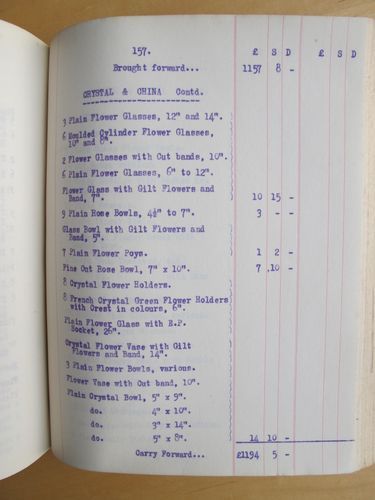 157. £ S D £ S D
Brought forward... 1157 8 -
CRYSTAL & CHINA Contd.
3 Plain Flower Glasses, 12" and 14".
6 Moulded Cylinder Flower Glasses,
10" and 8".
2 Flower Glasses with Cut bands, 10".
6 Plain Flower Glasses, 6" to 12".
Flower Glass with Gilt Flowers and
Band, 7". 10 15 -
9 Plain Rose Bowls, 4½" to 7". 3 - -
Glass Bowl with Gilt Flowers and
Band, 5".
7 Plain Flower Poys. 1 2 -
Fine Cut Rose Bowl, 7" x 10". 7 10 -
8 Crystal Flower Holders.
8 French Crystal Green Flower Holders
with Crest in colours, 6".
Plain Flower Glass with E.P.
Socket, 26".
Crystal Flower Vase with Gilt
Flowers and Band, 14".
3 Plain Flower Bowls, various.
Flower Vase with Cut band, 10".
Plain Crystal Bowl, 5" x 9".
do. 4" x 10".
do. 3" x 14".
do. 5" x 8". 14 10 -
Carry Forward... £1194 5 -